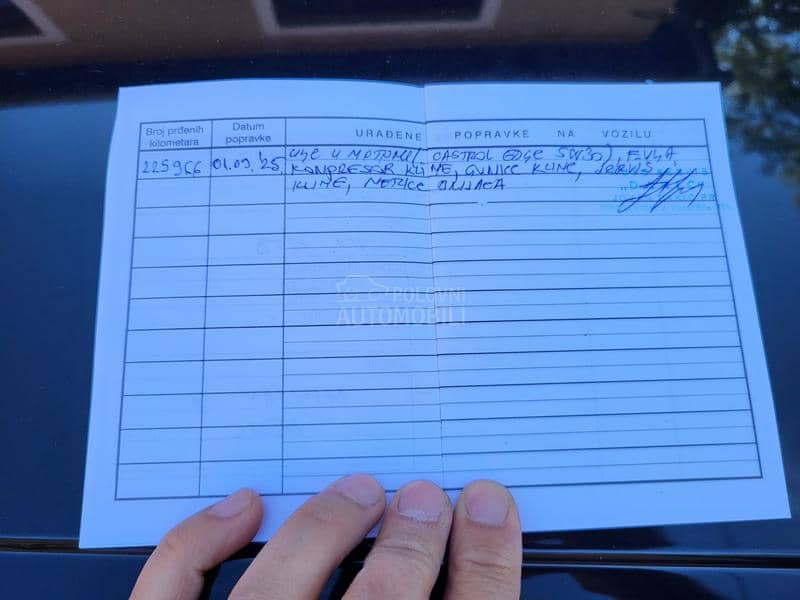 Broj prđenih kilometara
Datum popravke
URAĐENE POPRAVKE NA VOZILU
225966 01.09.'25. ULJE U MOTORU( CASTROL EDGE 5W30),
KOMPRESOR KLIME, KLIME,
KLIME,
POLOVNI
AUTOMOBILI